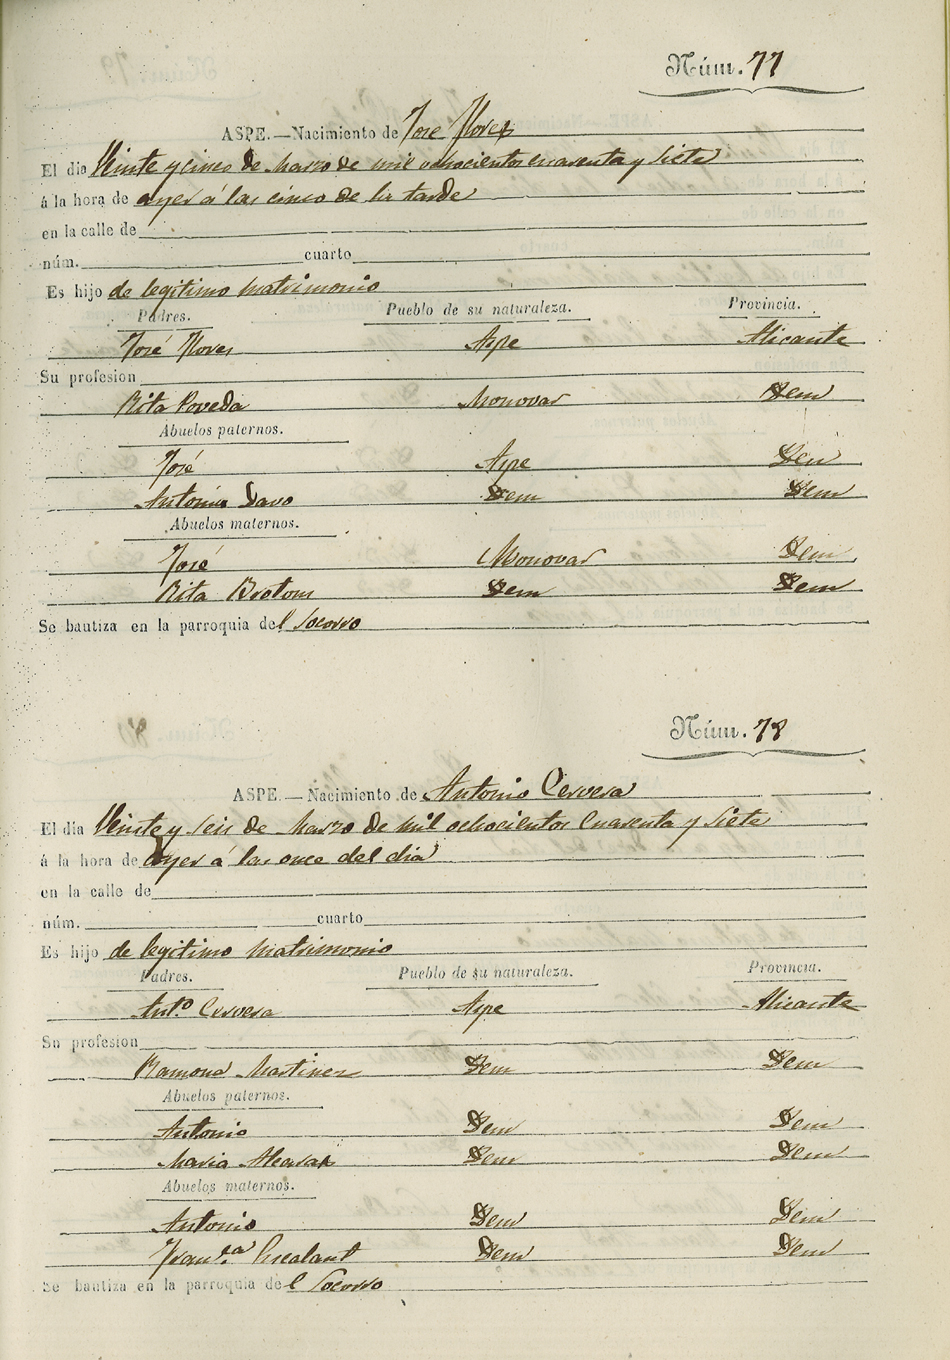 Núm. 77
ASPE.—Nacimiento de José Flores
El dia Veinte y cinco de Marzo de mil ochocientos cuarenta y siete
á la hora de ayer á las cinco de la tarde
en la calle de
núm. cuarto
Es hijo de legitimo matrimonio
Padres. Pueblo de su naturaleza. Provincia.
José Flores Aspe Alicante
Su profesion
Rita Poveda Monovar Idem
Abuelos paternos.
José Aspe Idem
Antonia Davo Idem Idem
Abuelos maternos.
José Monovar Idem
Rita Idem Idem
Se bautiza en la parroquia del Socorro
Núm. 78
ASPE.—Nacimiento de Antonio Cervera
El dia Veinte y seis de Marzo de mil ochocientos cuarenta y siete
á la hora de ayer á las once del dia
en la calle de
núm. cuarto
Es hijo de legitimo matrimonio
Padres. Pueblo de su naturaleza. Provincia.
Antº Cervera Aspe Alicante
Su profesion
Ramona Martinez Idem Idem
Abuelos paternos.
Antonio Idem Idem
Maria Alcaraz Idem Idem
Abuelos maternos.
Antonio Idem Idem
Franca Idem Idem
Se bautiza en la parroquia del Socorro